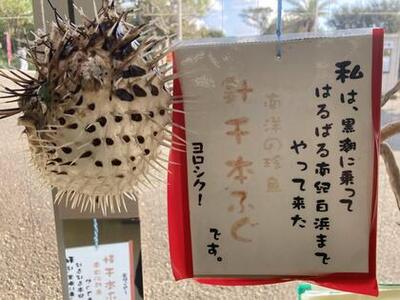 私は、黒潮に乗って
はるばる南紀白浜まで
やって来た
南洋の珍魚
針千本ふぐ
です。
ヨロシク！